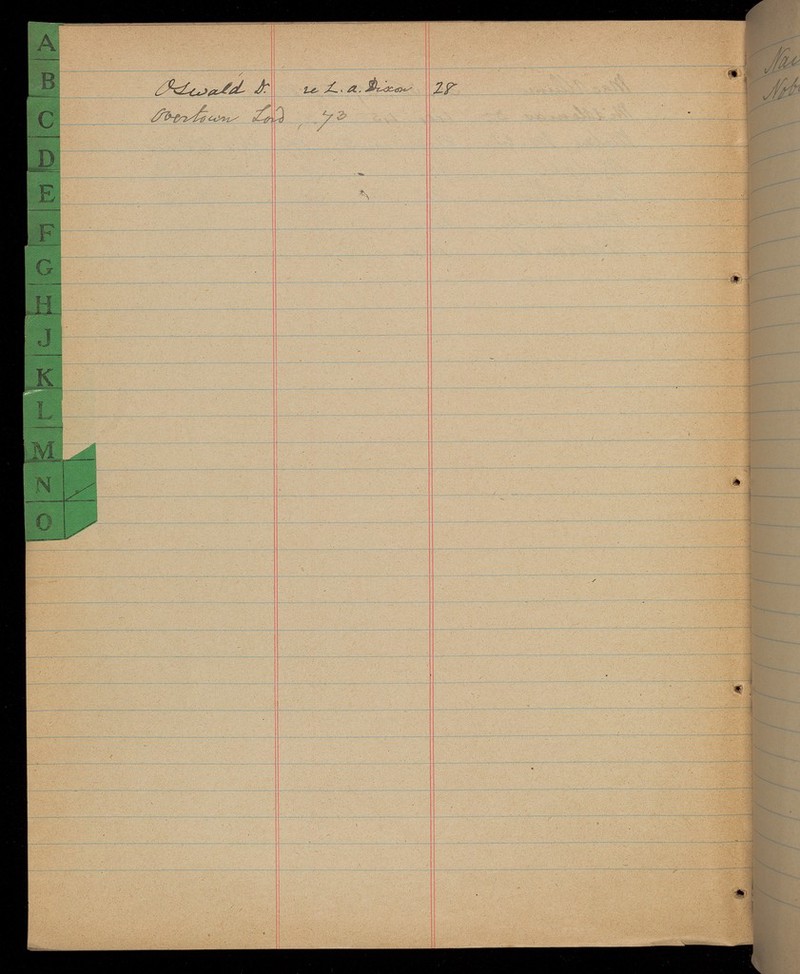 A
B
C
D
E
F
G
H
J
K
L
M
N
O
Oswald Dr re L. A. Dixon 28
Overtown Lord, 73
Nai
Nob